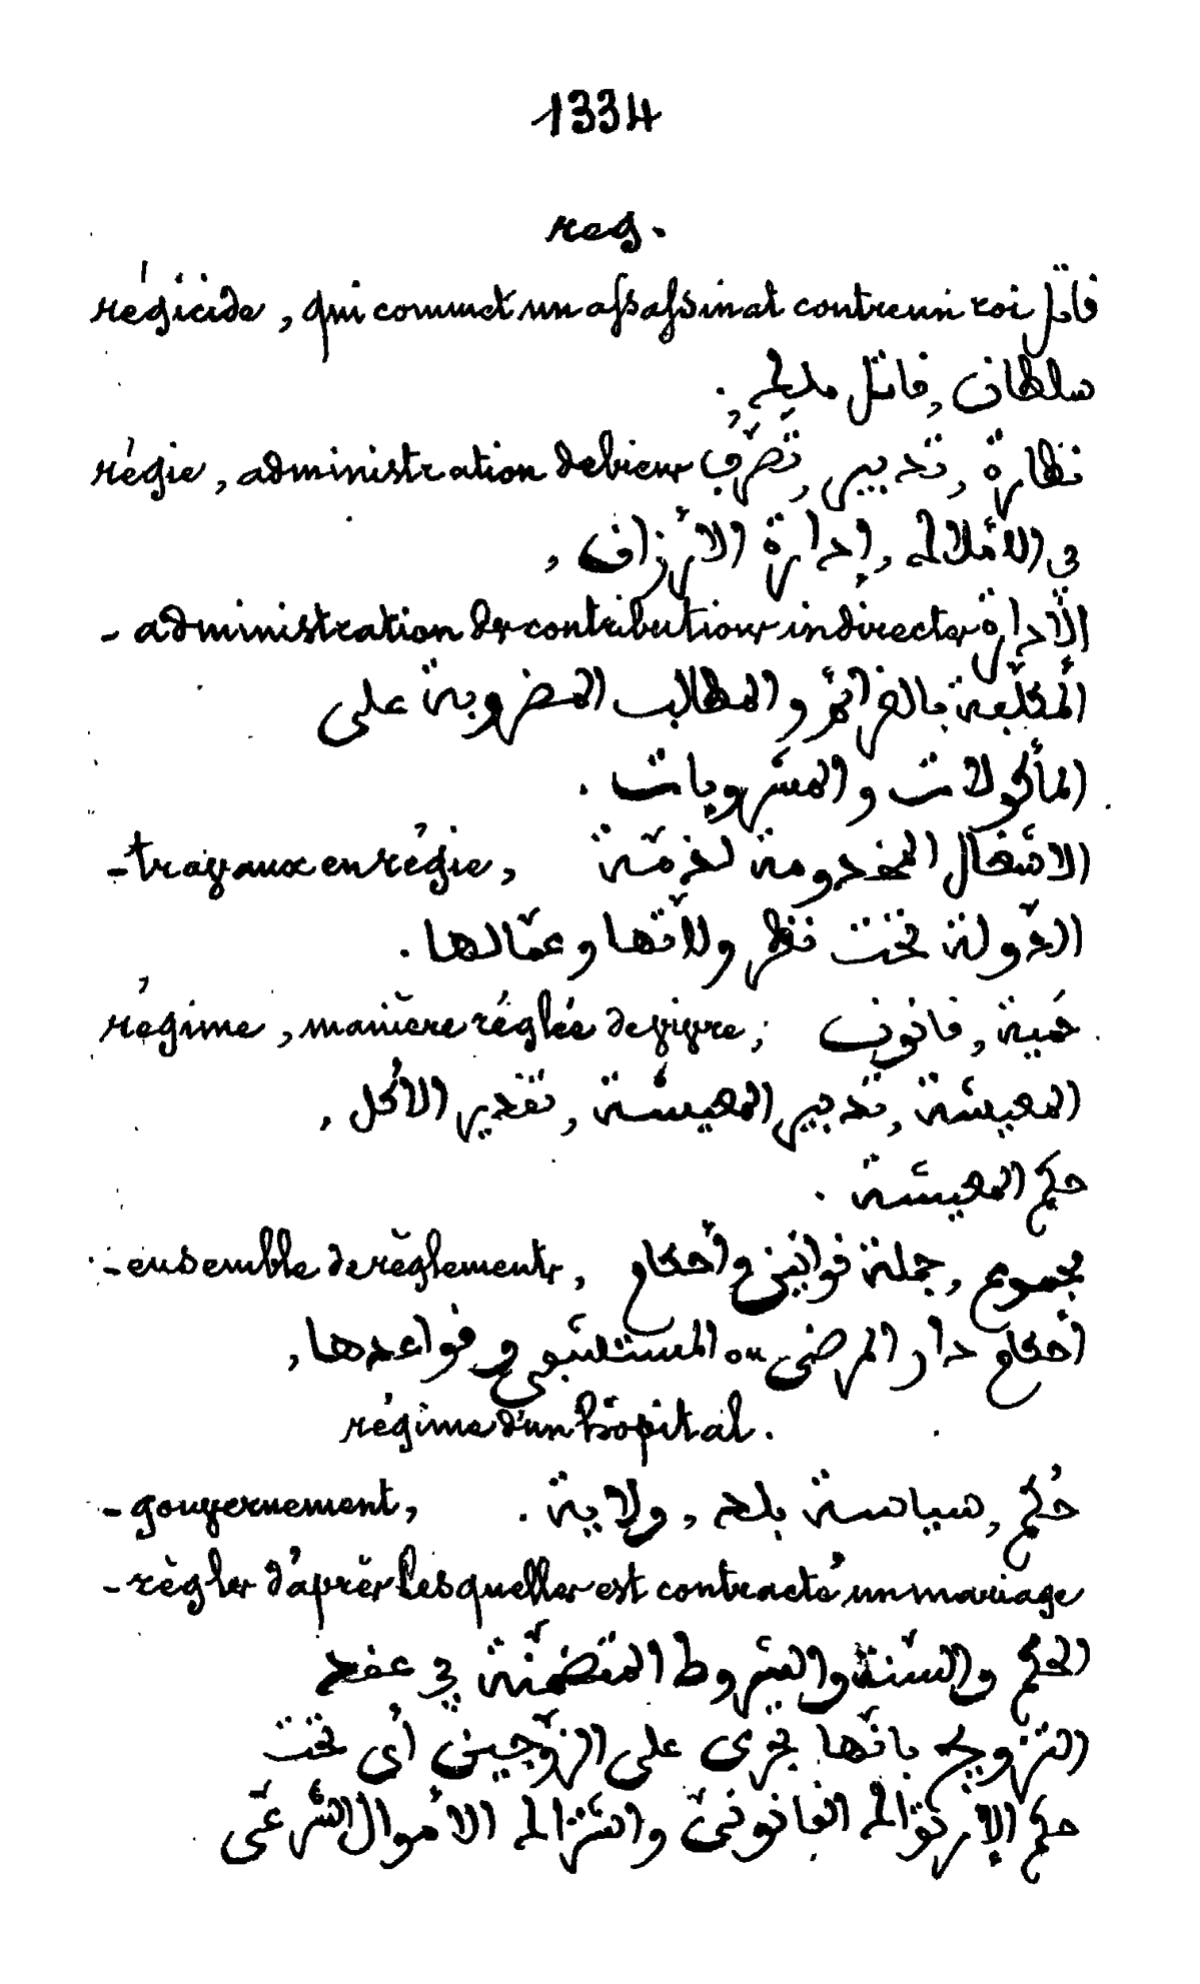 1334
reg.
régicide, qui commet un assassinat contre un roi قاتل
سلطان, قاتل ملك.
régie, administration de biens نظارة, تدبير, تصرّف
في الأملاك, إدارة الأرزاق,
- administration des contributions indirectes الإدارة
المكلّفة بالضرائر والمطالب المضروبة على
المأكولات والمشروبات.
- travaux en régie, الاشغال المخدومة لذمّة
الدّولة تحت نظر ولاّتها وعمّالها.
régime, manière réglée de vivre; حمية, قانون
المعيشة, تدبير المعيشة, تقدير الأكل,
حكم المعيشة.
- ensemble de règlements, مجموع, جملة قوانين وأحكام
أحكام دار المرضى ou المستشفى وقواعدها,
régime d'un hôpital.
- gouvernement, حُكم, سياسة بلد, ولاية.
- règles d'après lesquelles est contracté un mariage
الحكم والسّنة والشروط المتضمّنة في عقد
التزويج بانّها تجرى على الزّوجين أى تحت
حكم الإشتراك القانونىّ واشتراك الأموال الشّرعىّ